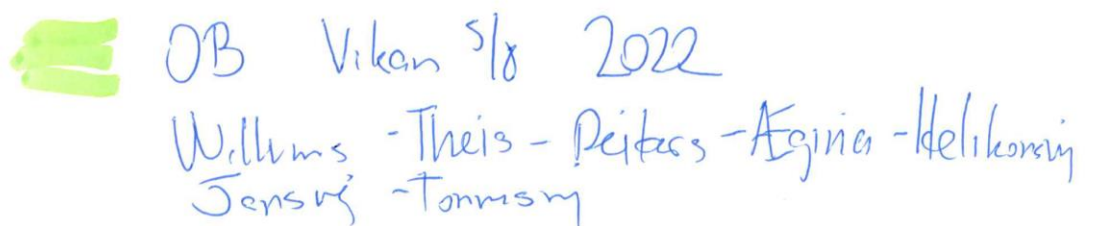 OB Vikan 5/8 2022
Willums - Theis - Peiters - Ægina - Helikonvej
Jensvej - Tonnesvej